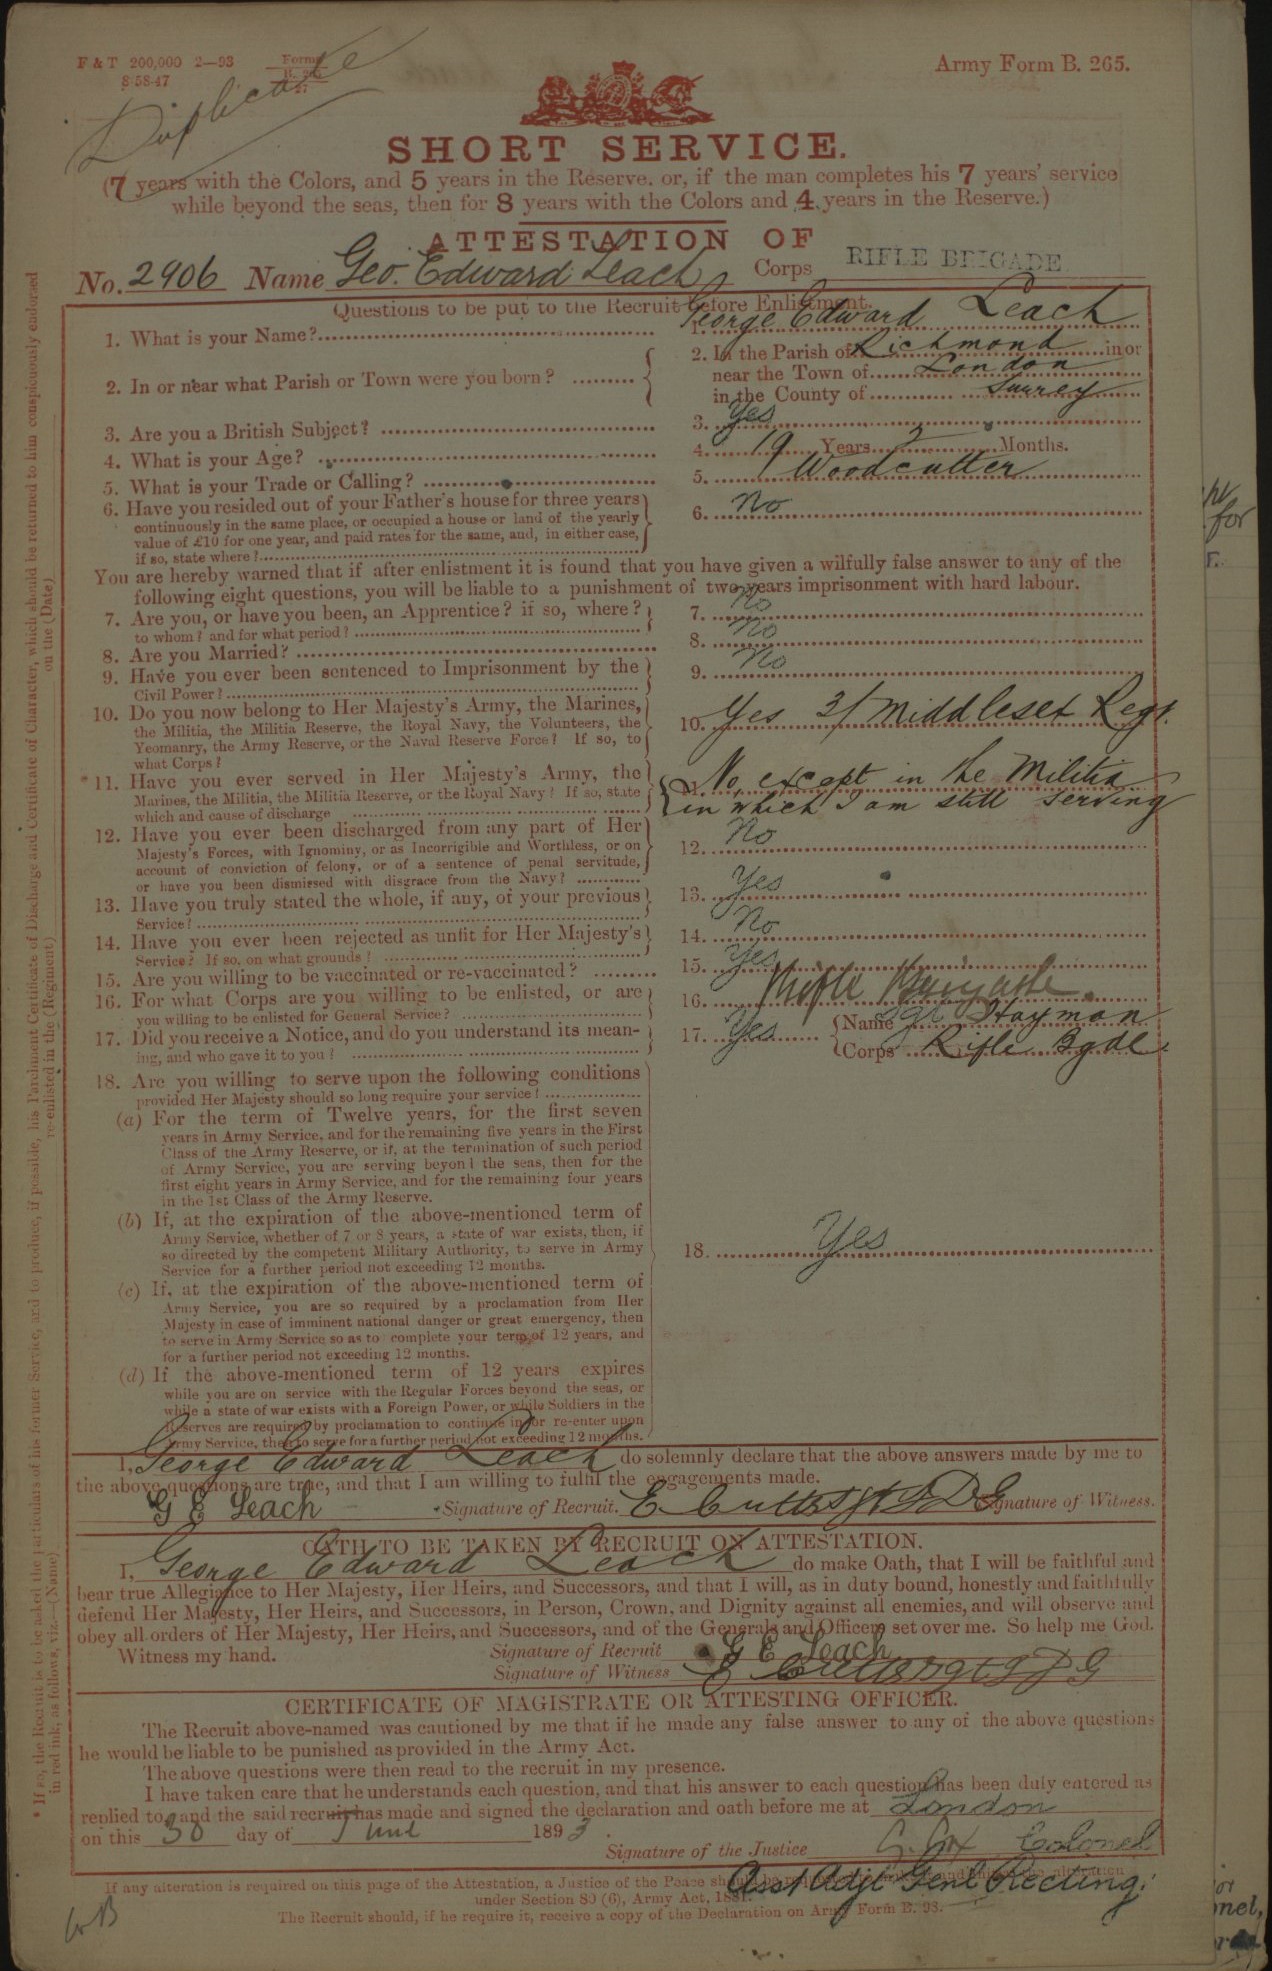 F & T 200,000 2—93
8 58 47
Forms
B. 265
27
Army Form B. 265.
Duplicate
SHORT SERVICE.
(7 years with the Colors, and 5 years in the Reserve, or, if the man completes his 7 years' service
while beyond the seas, then for 8 years with the Colors and 4 years in the Reserve.)
ATTESTATION OF
No. 2906 Name Geo. Edward Leach Corps RIFLE BRIGADE
Questions to be put to the Recruit before Enlistment.
1. What is your Name? 1. George Edward Leach
2. In or near what Parish or Town were you born? 2. In the Parish of Richmond in or
near the Town of London
in the County of Surrey
3. Are you a British Subject? 3. Yes
4. What is your Age? 4. 19 Years 2 Months.
5. What is your Trade or Calling? 5. Woodcutter
6. Have you resided out of your Father's house for three years 6. No
continuously in the same place, or occupied a house or land of the yearly
value of £10 for one year, and paid rates for the same, and, in either case,
if so, state where?
You are hereby warned that if after enlistment it is found that you have given a wilfully false answer to any of the
following eight questions, you will be liable to a punishment of two years imprisonment with hard labour.
7. Are you, or have you been, an Apprentice? if so, where? 7. No
to whom? and for what period?
8. Are you Married? 8. No
9. Have you ever been sentenced to Imprisonment by the 9. No
Civil Power?
10. Do you now belong to Her Majesty's Army, the Marines, 10. Yes 3/Middlesex Regt.
the Militia, the Militia Reserve, the Royal Navy, the Volunteers, the
Yeomanry, the Army Reserve, or the Naval Reserve Force? If so, to
what Corps?
* 11. Have you ever served in Her Majesty's Army, the 11. No, except in the Militia
Marines, the Militia, the Militia Reserve, or the Royal Navy? If so, state in which I am still serving
which and cause of discharge
12. Have you ever been discharged from any part of Her 12. No
Majesty's Forces, with Ignominy, or as Incorrigible and Worthless, or on
account of conviction of felony, or of a sentence of penal servitude,
or have you been dismissed with disgrace from the Navy?
13. Have you truly stated the whole, if any, of your previous 13. Yes
Service?
14. Have you ever been rejected as unfit for Her Majesty's 14. No
Service? If so, on what grounds?
15. Are you willing to be vaccinated or re-vaccinated? 15. Yes
16. For what Corps are you willing to be enlisted, or are 16. Rifle Brigade.
you willing to be enlisted for General Service?
17. Did you receive a Notice, and do you understand its mean- 17. Yes Name Sgt Hayman
ing, and who gave it to you? Corps Rifle Bgde.
18. Are you willing to serve upon the following conditions
provided Her Majesty should so long require your service?
(a) For the term of Twelve years, for the first seven
years in Army Service, and for the remaining five years in the First
Class of the Army Reserve, or if, at the termination of such period
of Army Service, you are serving beyond the seas, then for the
first eight years in Army Service, and for the remaining four years
in the 1st Class of the Army Reserve.
(b) If, at the expiration of the above-mentioned term of
Army Service, whether of 7 or 8 years, a state of war exists, then, if
so directed by the competent Military Authority, to serve in Army 18. Yes
Service for a further period not exceeding 12 months.
(c) If, at the expiration of the above-mentioned term of
Army Service, you are so required by a proclamation from Her
Majesty in case of imminent national danger or great emergency, then
to serve in Army Service so as to complete your term of 12 years, and
for a further period not exceeding 12 months.
(d) If the above-mentioned term of 12 years expires
while you are on service with the Regular Forces beyond the seas, or
while a state of war exists with a Foreign Power, or while Soldiers in the
Reserves are required by proclamation to continue in or re-enter upon
Army Service, then to serve for a further period not exceeding 12 months.
I, George Edward Leach do solemnly declare that the above answers made by me to
the above questions are true, and that I am willing to fulfil the engagements made.
G E Leach Signature of Recruit. E Cutts Sgt G D G Signature of Witness.
OATH TO BE TAKEN BY RECRUIT ON ATTESTATION.
I, George Edward Leach do make Oath, that I will be faithful and
bear true Allegiance to Her Majesty, Her Heirs, and Successors, and that I will, as in duty bound, honestly and faithfully
defend Her Majesty, Her Heirs, and Successors, in Person, Crown, and Dignity against all enemies, and will observe and
obey all orders of Her Majesty, Her Heirs, and Successors, and of the Generals and Officers set over me. So help me God.
Witness my hand. Signature of Recruit G E Leach
Signature of Witness E Cutts Sgt G D G
CERTIFICATE OF MAGISTRATE OR ATTESTING OFFICER.
The Recruit above-named was cautioned by me that if he made any false answer to any of the above questions
he would be liable to be punished as provided in the Army Act.
The above questions were then read to the recruit in my presence.
I have taken care that he understands each question, and that his answer to each question has been duly entered as
replied to, and the said recruit has made and signed the declaration and oath before me at London
on this 30 day of June 1893.
Signature of the Justice G. Fox Colonel
Asst Adjt Genl Recting.
If any alteration is required on this page of the Attestation, a Justice of the Peace should be requested to make it and initial the alteration
under Section 80 (6), Army Act, 1881.
The Recruit should, if he require it, receive a copy of the Declaration on Army Form B. 93.
* If so, the Recruit is to be asked the particulars of his former Service, and to produce, if possible, his Parchment Certificate of Discharge and Certificate of Character, which should be returned to him conspicuously endorsed
in red ink, as follows, viz.—(Name) re-enlisted in the (Regiment) on the (Date)
for
nel,